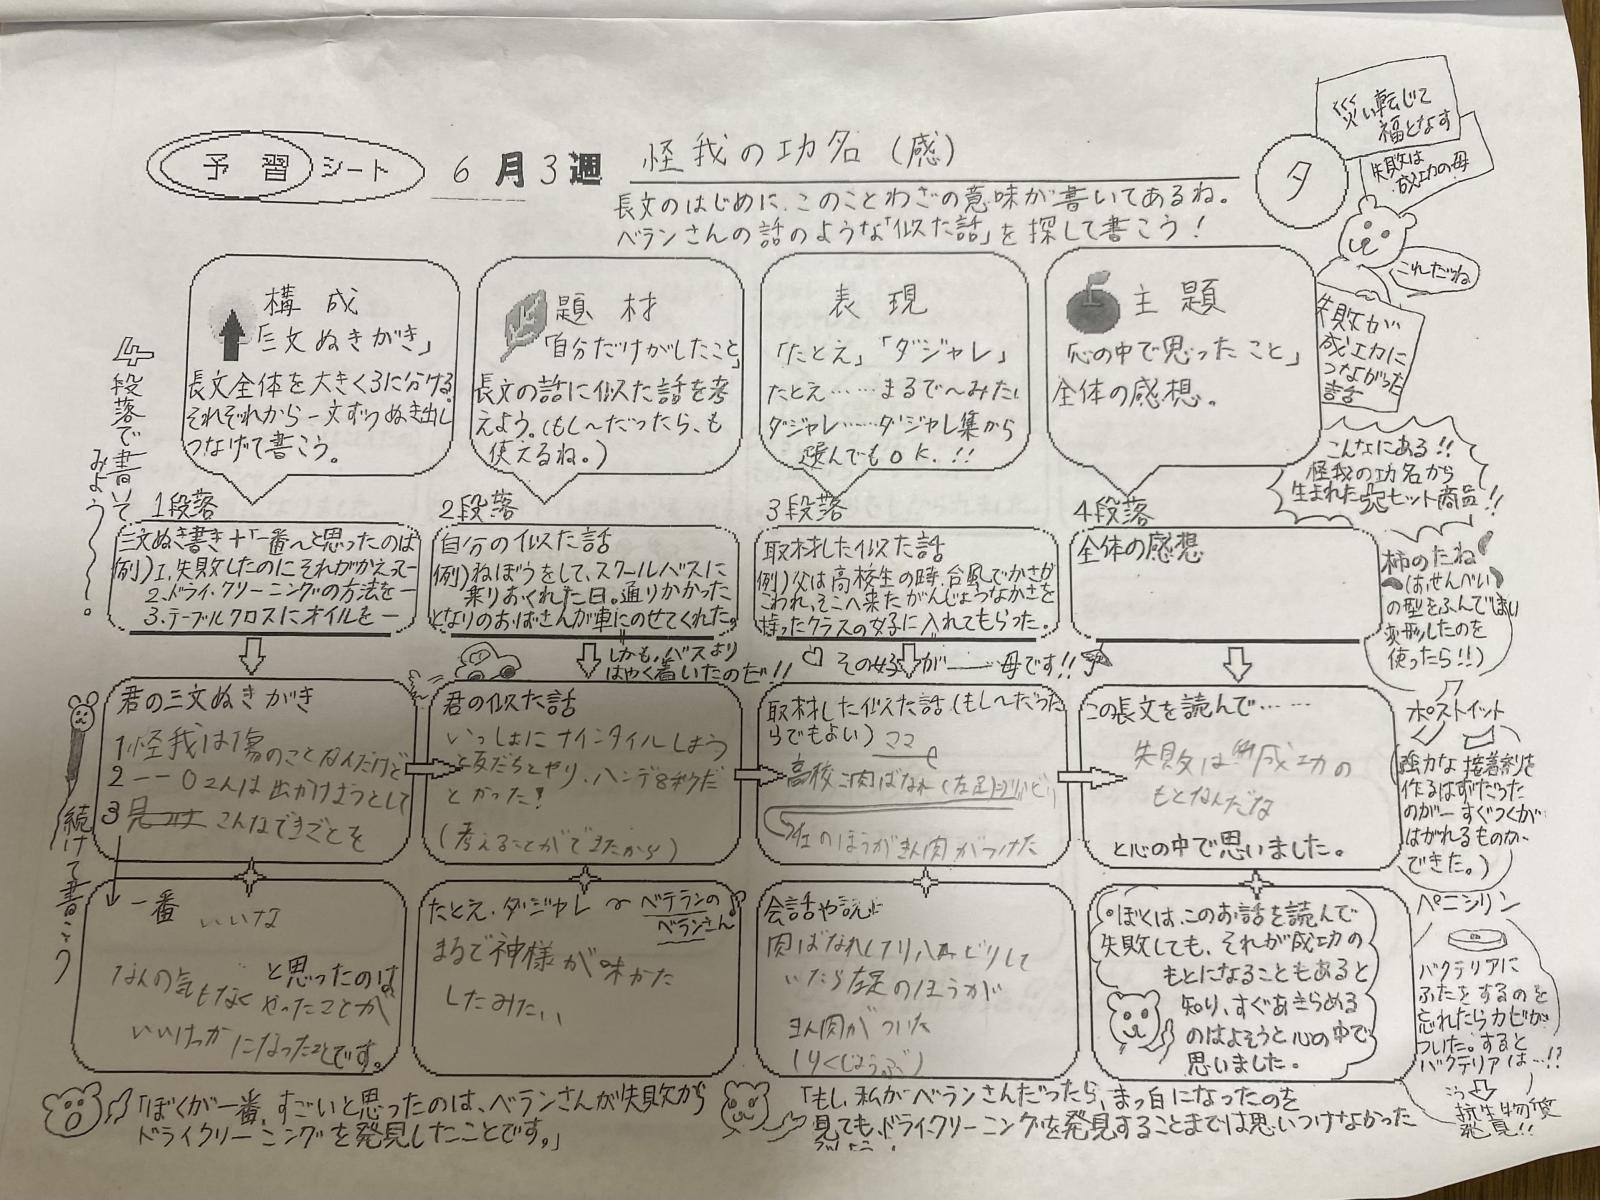 予習シート 6月3週 怪我の功名(感)
タ
長文のはじめに、このことわざの意味が書いてあるね。
ベランさんの話のような「似た話」を探して書こう!
災い転じて
福となす
失敗は
成功の母
これだね
失敗が
成功に
つながった
話
4段落で書いて
みよう〜〜。
構成
「三文ぬきがき」
長文全体を大きく3に分ける。
それぞれから一文ずつぬき出し
つなげて書こう。
題材
「自分だけがしたこと」
長文の話に似た話を考
えよう。(もし〜だったら、も
使えるね。)
表現
「たとえ」「ダジャレ」
たとえ……まるで〜みたい
ダジャレ……ダジャレ集から
選んでもOK.!!
主題
「心の中で思ったこと」
全体の感想。
こんなにある!!
怪我の功名から
生まれた大ヒット商品!!
1段落
三文ぬき書き+「一番〜と思ったのは
例)1.失敗したのにそれがかえって
2.ドライ・クリーニングの方法を一
3.テーブルクロスにオイルを一
2段落
自分の似た話
例)ねぼうをして、スクールバスに
乗りおくれた日。通りかかった
となりのおばさんが車にのせてくれた。
しかも、バスより
はやく着いたのだ!!
3段落
取材した似た話
例)父は高校生の時、台風でかさが
こわれ、そこへ来たがんじょうなかさを
持ったクラスの女子に入れてもらった。
その女子が——母です!!
4段落
全体の感想
柿のたね
(はせんべい
の型をふんでしまい
変形したのを
使ったら!!)
続けて書こう
君の三文ぬきがき
1怪我は傷のことなんだけど
2一一Oさんは出かけようとして
3 こんなできごとを
君の似た話
いっしょにナインタイルしよう
と友だちとやり、ハンデ8秒だ
とかった!
(考えることができたから)
取材した似た話(もし〜だった
らでもよい) ママ
高校 肉ばなれ(左足)
左のほうがきん肉がつけた
この長文を読んで……
失敗は 成功の
もとなんだな
と心の中で思いました。
ポストイット
(強力な接着剤を
作るはずだった
のが一すぐつくが
はがれるものが、
できた。)
一番 いいな
と思ったのは
なんの気もなく やったことが
いいけっか になったことです。
たとえ、ダジャレ 〜ベテランの
ベランさん
まるで神様が味かた
したみたい
会話や説に
肉ばなれしてリハビリして
いたら左足のほうが
きん肉がついた
(りくじょうぶ)
ぼくは、このお話を読んで
失敗しても、それが成功の
もとになることもあると
知り、すぐあきらめる
のはよそうと心の中で
思いました。
ペニシリン
バクテリアに
ふたをするのを
忘れたらカビが
ついた。すると
バクテリアは…!?
抗生物質
発見!!
「ぼくが一番、すごいと思ったのは、ベランさんが失敗から
ドライクリーニングを発見したことです。」
「もし、私がベランさんだったら、まっ白になったのを
見ても、ドライクリーニングを発見することまでは思いつけなかった